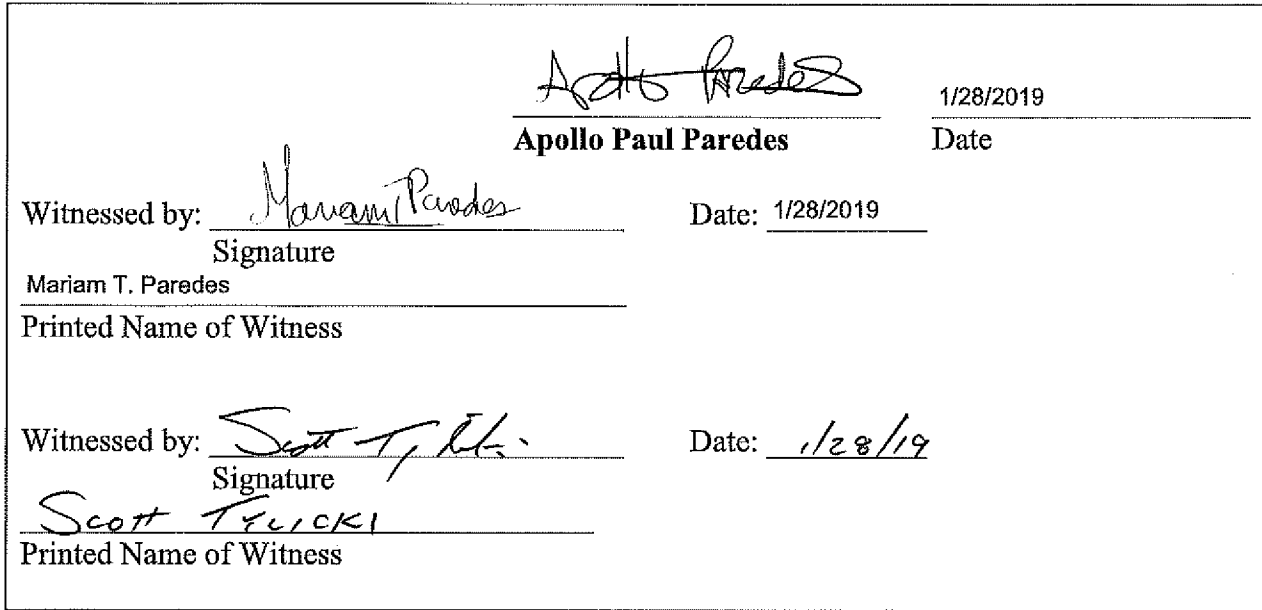 Apollo Paredes 1/28/2019
Apollo Paul Paredes Date
Witnessed by: Mariam T Paredes Date: 1/28/2019
Signature
Mariam T. Paredes
Printed Name of Witness
Witnessed by: Scott Tylicki Date: 1/28/19
Signature
SCOTT TYLICKI
Printed Name of Witness